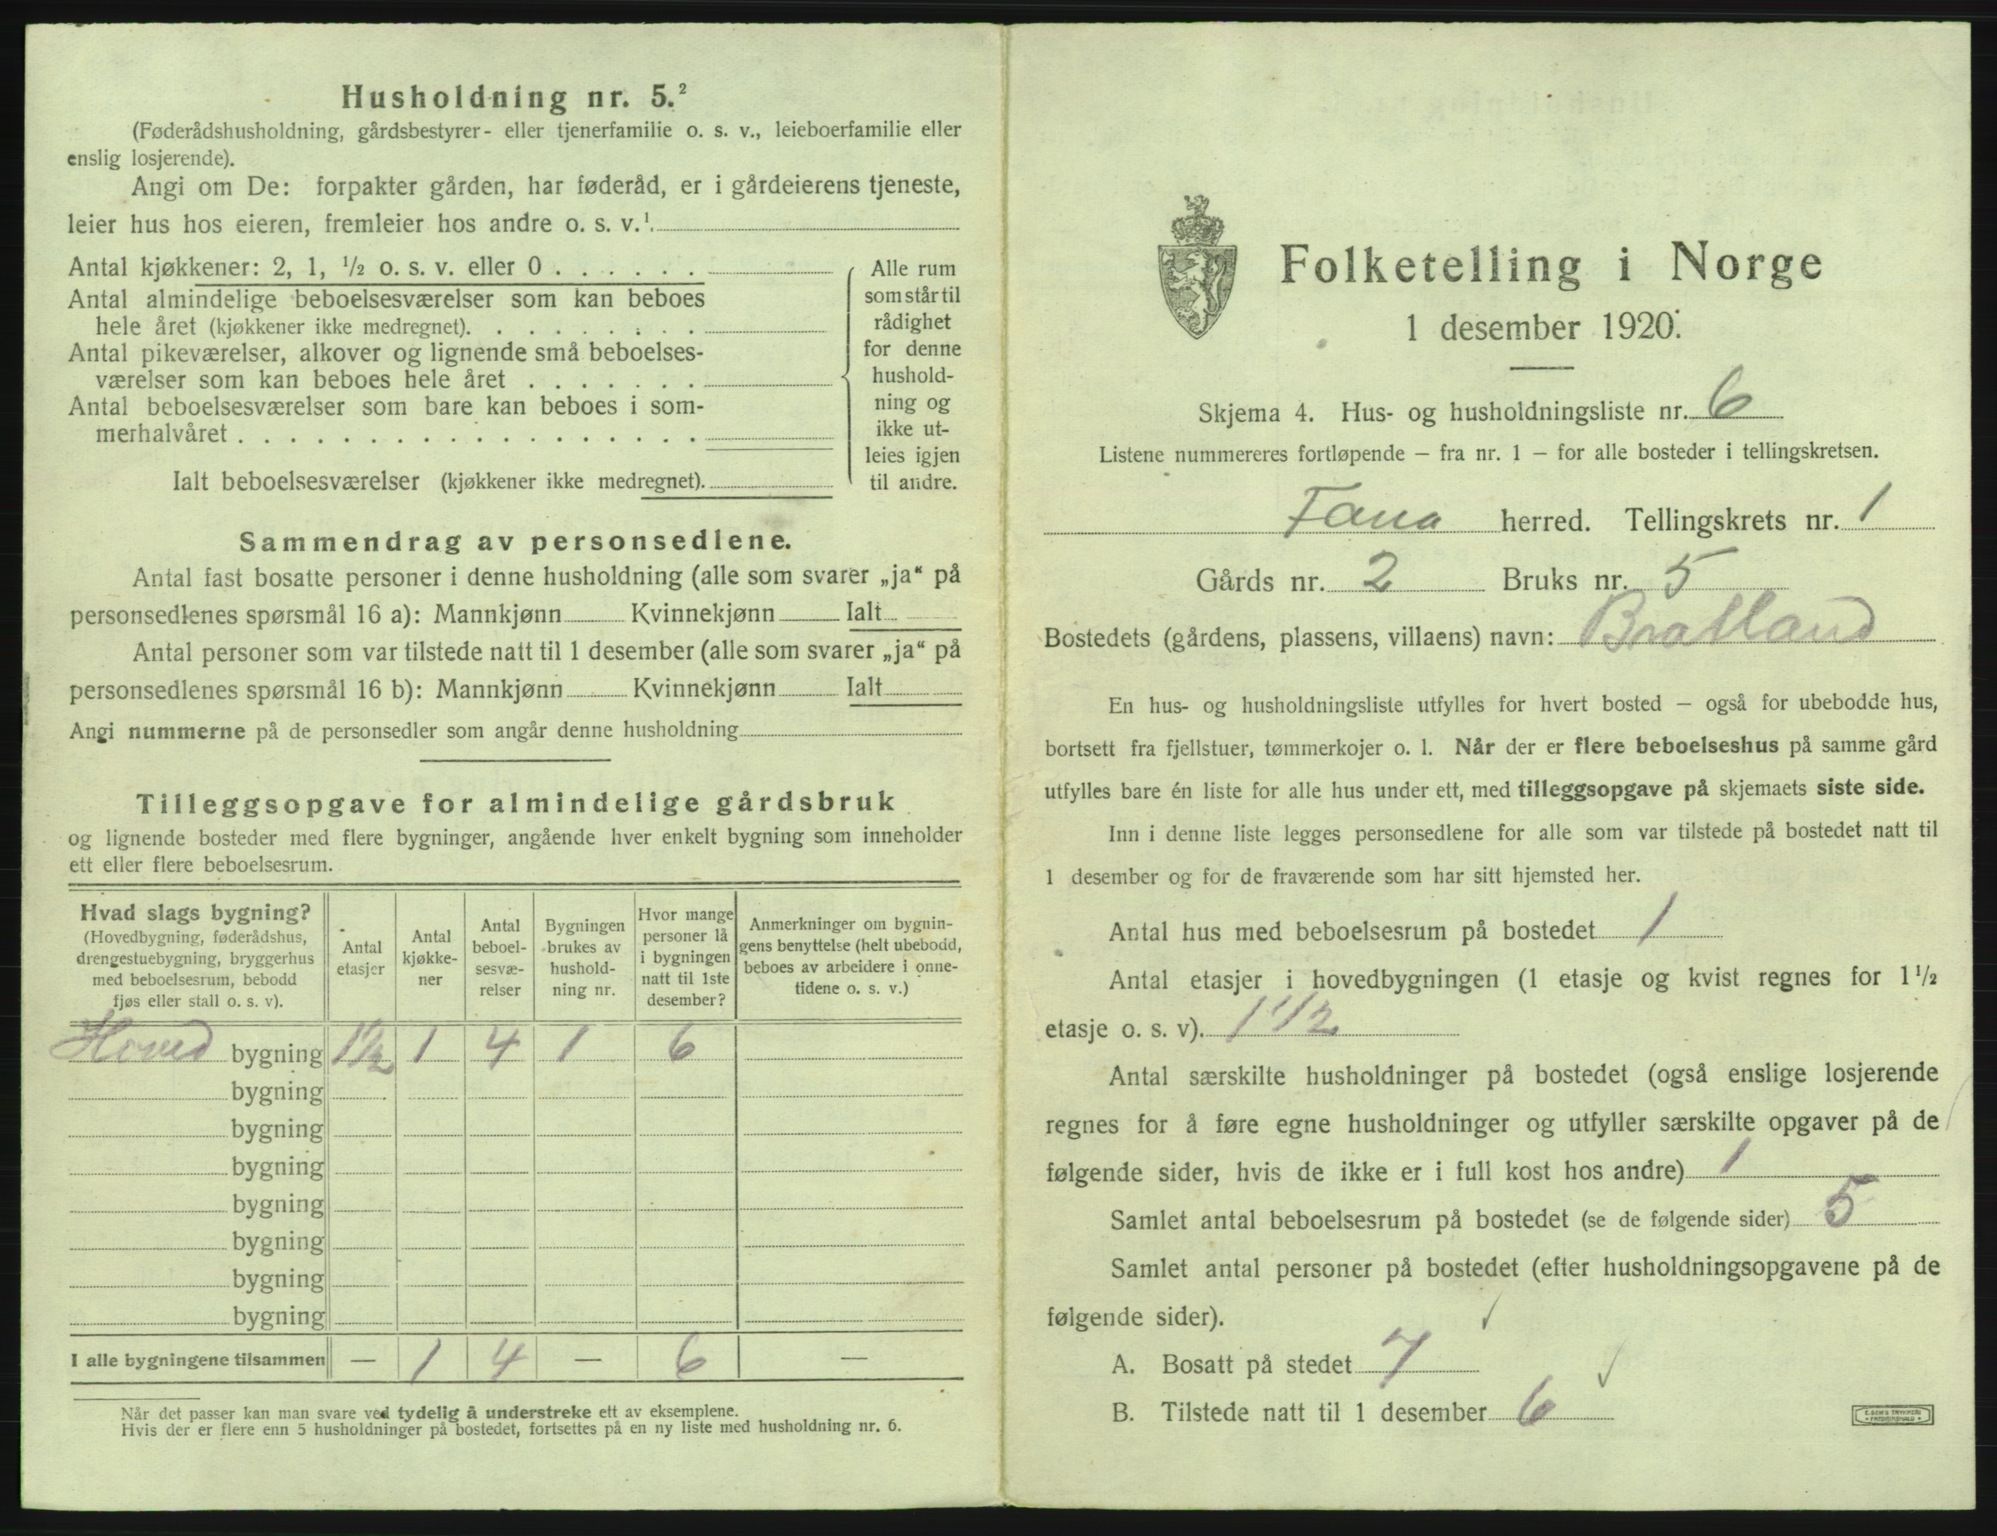 Husholdning nr. 5.²
(Føderådshusholdning, gårdsbestyrer- eller tjenerfamilie o. s. v., leieboerfamilie eller
enslig losjerende).
Angi om De: forpakter gården, har føderåd, er i gårdeierens tjeneste,
leier hus hos eieren, fremleier hos andre o. s. v.¹
Antal kjøkkener: 2, 1, ½ o. s. v. eller 0 . . . . . .
Antal almindelige beboelsesværelser som kan beboes
hele året (kjøkkener ikke medregnet). . . . . . . . .
Antal pikeværelser, alkover og lignende små beboelses-
værelser som kan beboes hele året . . . . . . .
Antal beboelsesværelser som bare kan beboes i som-
merhalvåret . . . . . . . . . . . . . . . . . .
Ialt beboelsesværelser (kjøkkener ikke medregnet).
Alle rum
som står til
rådighet
for denne
hushold-
ning og
ikke ut-
leies igjen
til andre.
Sammendrag av personsedlene.
Antal fast bosatte personer i denne husholdning (alle som svarer „ja“ på
personsedlenes spørsmål 16 a): Mannkjønn Kvinnekjønn Ialt
Antal personer som var tilstede natt til 1 desember (alle som svarer „ja“ på
personsedlenes spørsmål 16 b): Mannkjønn Kvinnekjønn Ialt
Angi nummerne på de personsedler som angår denne husholdning
Tilleggsopgave for almindelige gårdsbruk
og lignende bosteder med flere bygninger, angående hver enkelt bygning som inneholder
ett eller flere beboelsesrum.
Hvad slags bygning?
(Hovedbygning, føderådshus,
drengestuebygning, bryggerhus
med beboelsesrum, bebodd
fjøs eller stall o. s. v).
Antal
etasjer
Antal
kjøkke-
ner
Antal
beboel-
sesvæ-
relser
Bygningen
brukes av
hushold-
ning nr.
Hvor mange
personer lå
i bygningen
natt til 1ste
desember?
Anmerkninger om bygnin-
gens benyttelse (helt ubebodd,
beboes av arbeidere i onne-
tidene o. s. v.)
Hoved bygning 1½ 1 4 1 6
bygning
bygning
bygning
bygning
bygning
bygning
bygning
I alle bygningene tilsammen — 1 4 — 6 —
Når det passer kan man svare ved tydelig å understreke ett av eksemplene.
Hvis der er flere enn 5 husholdninger på bostedet, fortsettes på en ny liste med husholdning nr. 6.
Folketelling i Norge
1 desember 1920.
Skjema 4. Hus- og husholdningsliste nr. 6
Listene nummereres fortløpende – fra nr. 1 – for alle bosteder i tellingskretsen.
Fana herred. Tellingskrets nr. 1
Gårds nr. 2 Bruks nr. 5
Bostedets (gårdens, plassens, villaens) navn: Bratland
En hus- og husholdningsliste utfylles for hvert bosted – også for ubebodde hus,
bortsett fra fjellstuer, tømmerkojer o. l. Når der er flere beboelseshus på samme gård
utfylles bare én liste for alle hus under ett, med tilleggsopgave på skjemaets siste side.
Inn i denne liste legges personsedlene for alle som var tilstede på bostedet natt til
1 desember og for de fraværende som har sitt hjemsted her.
Antal hus med beboelsesrum på bostedet 1
Antal etasjer i hovedbygningen (1 etasje og kvist regnes for 1½
etasje o. s. v). 1 1/2
Antal særskilte husholdninger på bostedet (også enslige losjerende
regnes for å føre egne husholdninger og utfyller særskilte opgaver på de
følgende sider, hvis de ikke er i full kost hos andre) 1
Samlet antal beboelsesrum på bostedet (se de følgende sider) 5
Samlet antal personer på bostedet (efter husholdningsopgavene på de
følgende sider).
A. Bosatt på stedet 7
B. Tilstede natt til 1 desember 6